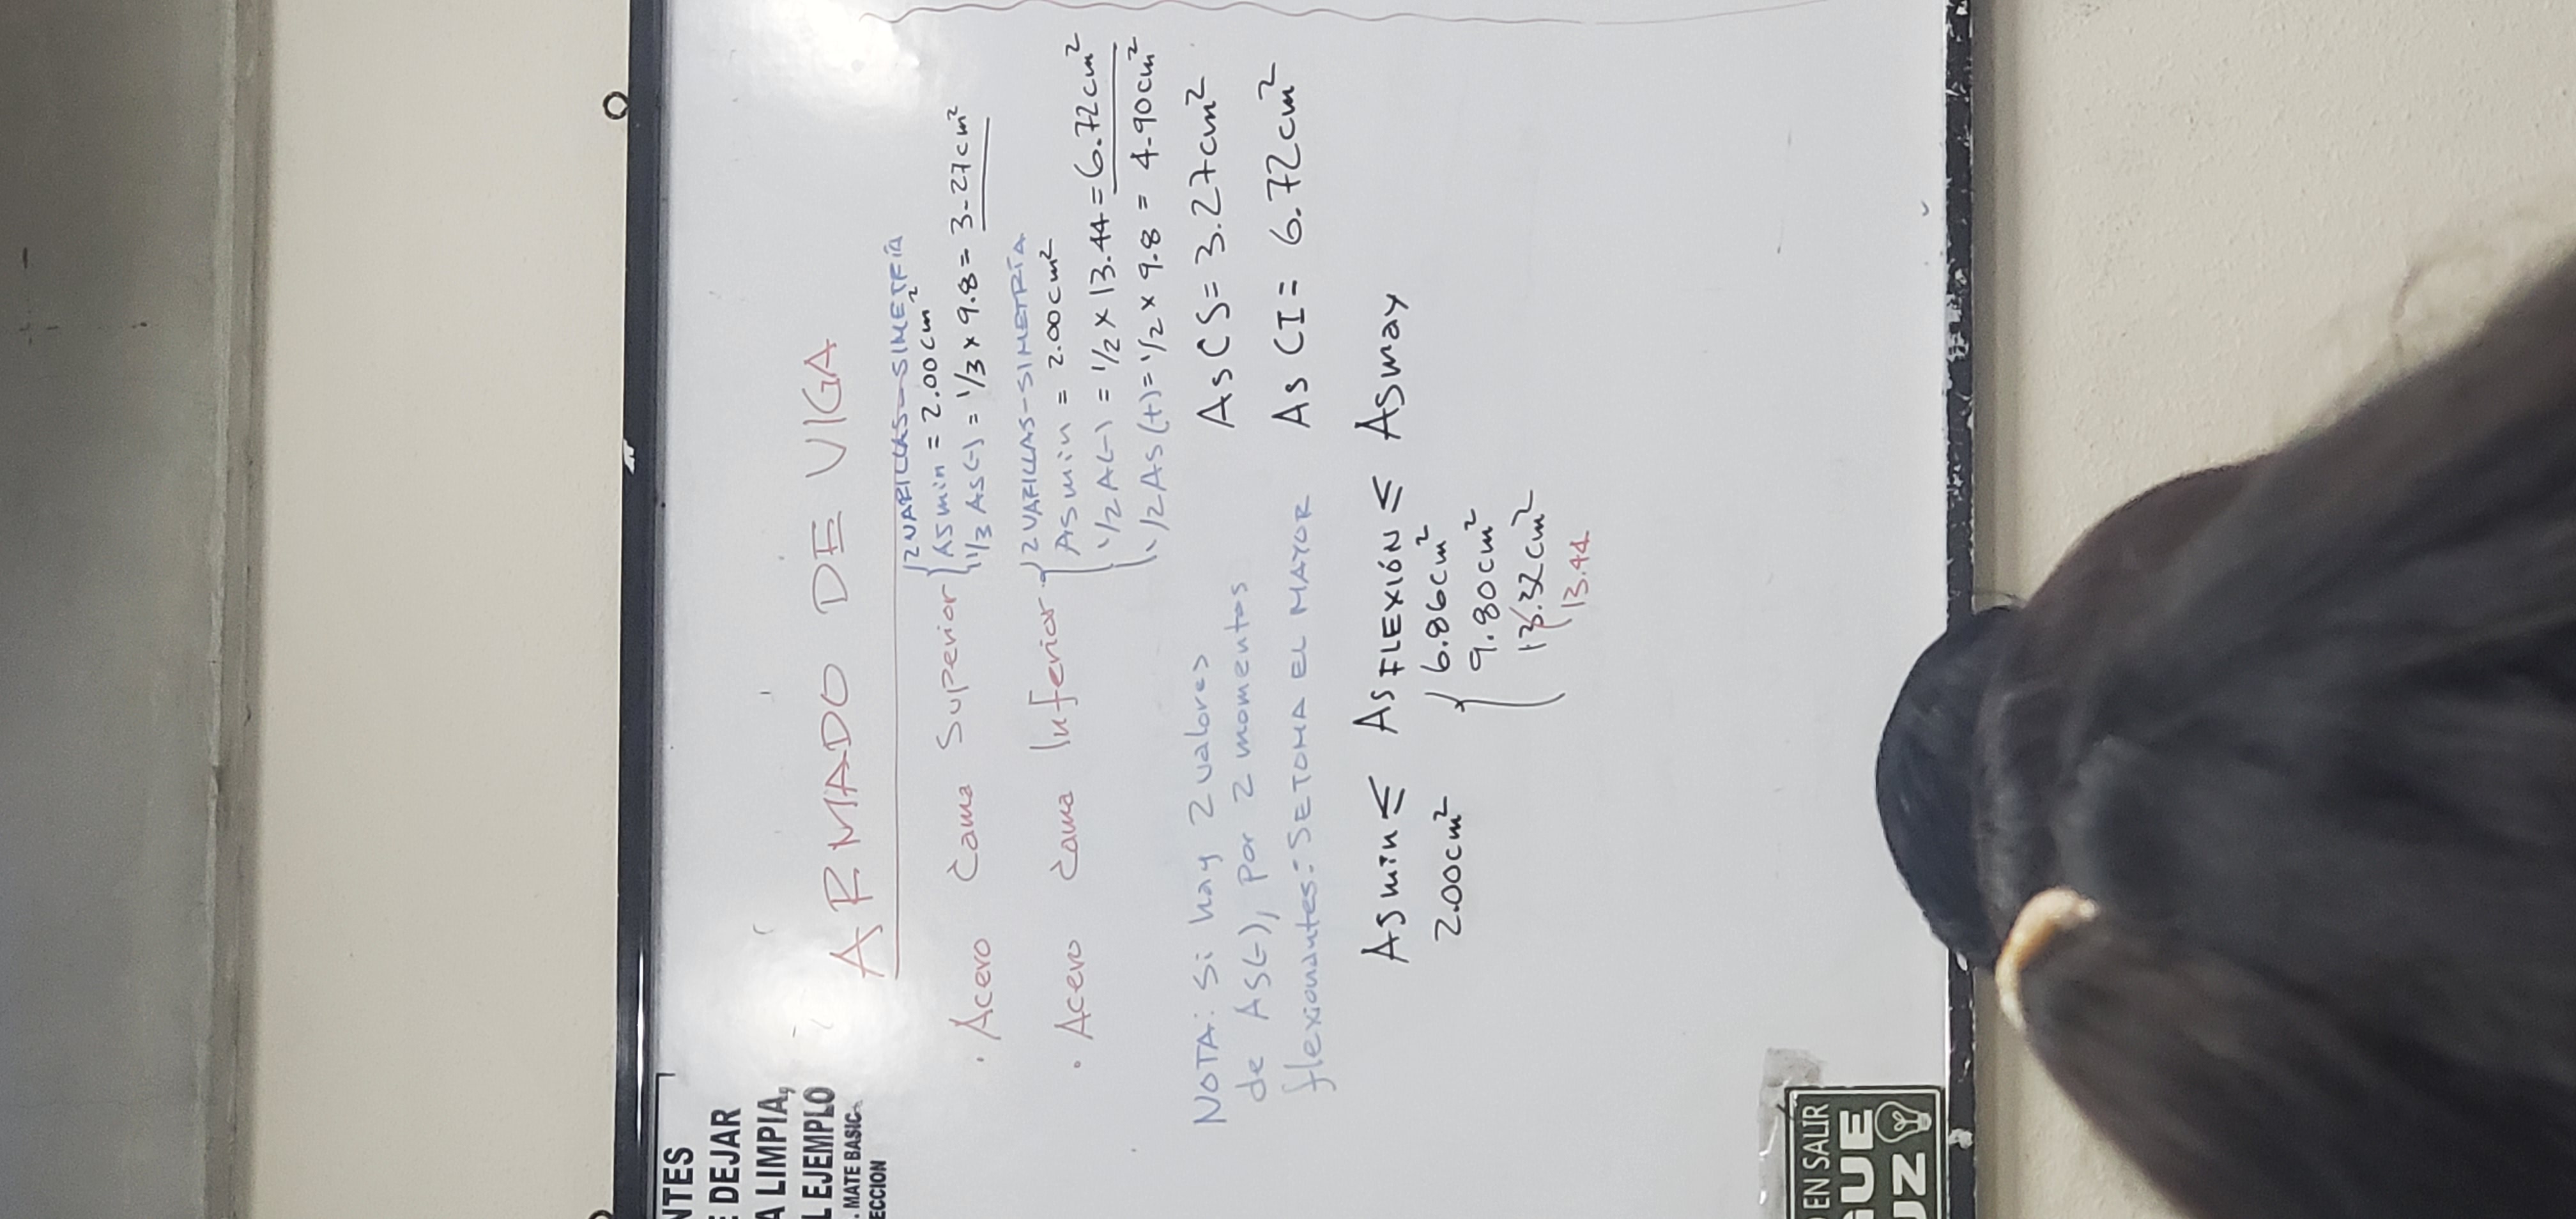 NTES
E DEJAR
A LIMPIA,
L EJEMPLO
. MATE BASIC
ECCION
ARMADO DE VIGA
· Acero Cama Superior
2 VARILLAS - SIMETRÍA
Asmin = 2.00 cm²
1/3 As(-) = 1/3 x 9.8 = 3.27 cm²
· Acero Cama Inferior
2 VARILLAS - SIMETRÍA
Asmin = 2.00 cm²
1/2 A(-) = 1/2 x 13.44 = 6.72 cm²
1/2 As (+) = 1/2 x 9.8 = 4.90 cm²
NOTA: Si hay 2 valores
de As(-), por 2 momentos
flexionantes: SE TOMA EL MAYOR
As CS = 3.27 cm²
As CI = 6.72 cm²
Asmin ≤ As FLEXIÓN ≤ Asmax
2.00 cm²
6.86 cm²
9.80 cm²
13.32 cm²
13.44
EN SALIR
GUE
UZ